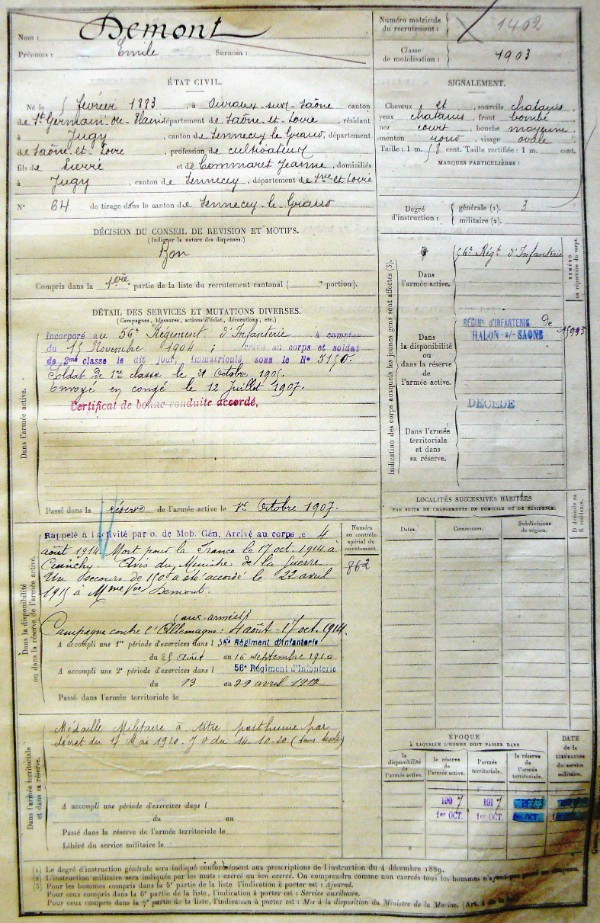 Nom : Demont
Prénoms : Emile Surnom :
Numéro matricule du recrutement : 1402
Classe de mobilisation : 1903
ÉTAT CIVIL.
Né le février 1883, à sur-Saône canton
de St Germain-du-Plain département de Saône-et-Loire, résidant
à Jugy, canton de Sennecey-le-Grand, département
de Saône-et-Loire, profession de cultivateur
fils de Pierre et de Commaret Jeanne, domiciliés
à Jugy, canton de Sennecey, département de et Loire
N° 64 de tirage dans le canton de Sennecey-le-Grand
SIGNALEMENT.
Cheveux et sourcils chatains
yeux chatains front bombé
nez court, bouche moyenne
menton rond visage ovale
Taille : 1 m. cent. Taille rectifiée : 1 m. cent.
MARQUES PARTICULIÈRES :
Degré d'instruction : générale (1). 3
militaire (2).
DÉCISION DU CONSEIL DE REVISION ET MOTIFS.
(Indiquer la nature des dispenses.)
Bon
Compris dans la 1ère partie de la liste du recrutement cantonal ( portion).
DÉTAIL DES SERVICES ET MUTATIONS DIVERSES.
(Campagnes, blessures, actions d'éclat, décorations, etc.)
Dans l'armée active.
Incorporé au 56e Régiment d'Infanterie à compter
du Novembre 1904 au corps et soldat
de 2me classe le dit jour, immatriculé sous le N° 5170.
Soldat de 1re classe le 21 Octobre 1905.
Envoyé en congé le 12 Juillet 1907.
Certificat de bonne conduite accordé.
Passé dans la réserve de l'armée active le 1er Octobre 1907.
Indication des corps auxquels les jeunes gens sont affectés (3).
Dans l'armée active. 56e Régt d'Infanterie
Dans la disponibilité ou dans la réserve de l'armée active.
RÉGIMt D'INFANTERIE de
HALON s/ SAONE
DÉCÉDÉ
Dans l'armée territoriale et dans sa réserve.
NUMÉRO au répertoire du corps.
LOCALITÉS SUCCESSIVES HABITÉES
PAR SUITE DE CHANGEMENTS DE DOMICILE OU DE RÉSIDENCE.
Dates. Communes. Subdivisions de région. D domicile ou R résidence.
Dans la disponibilité ou dans la réserve de l'armée active.
Numéro au contrôle spécial du recrutement.
862
Rappelé à l'activité par o. de Mob. Gén. Arrivé au corps le 4
août 1914. Mort pour la France le 17 oct. 1914 à
Avis du Ministre de la Guerre.
Un secours de 150f a été accordé le 22 avril
1915 à Mme Vve Demont.
aux armées
Campagne contre l'Allemagne : 4 août - 17 oct. 1914.
A accompli une 1re période d'exercices dans l 56e Régiment d'Infanterie
du 25 Août au 16 septembre 1910
A accompli une 2e période d'exercices dans l 56e Régiment d'Infanterie
du 13 au 29 avril 1912
Passé dans l'armée territoriale le
Dans l'armée territoriale et dans sa réserve.
Médaille Militaire à titre posthume par
du Mai 1920. J.O. du 14-10-20
A accompli une période d'exercices dans l
du au
Passé dans la réserve de l'armée territoriale le
Libéré du service militaire le
ÉPOQUE
À LAQUELLE L'HOMME DOIT PASSER DANS
la disponibilité de l'armée active. la réserve de l'armée active. l'armée territoriale. la réserve de l'armée territoriale.
DATE de la LIBÉRATION du service militaire.
1907 1917
1er OCT. 1er OCT.
(1) Le degré d'instruction générale sera indiqué conformément aux prescriptions de l'instruction du 4 décembre 1889.
(2) L'instruction militaire sera indiquée par les mots : exercé ou non exercé.
(3) Pour les hommes compris dans la 5e partie de la liste l'indication à porter est : Ajourné.
Pour ceux compris dans la 6e partie, l'indication à porter est : Service auxiliaire.
Pour ceux compris dans la 7e partie de la liste, l'indication à porter est : Mis à la disposition du Ministre de la Marine.